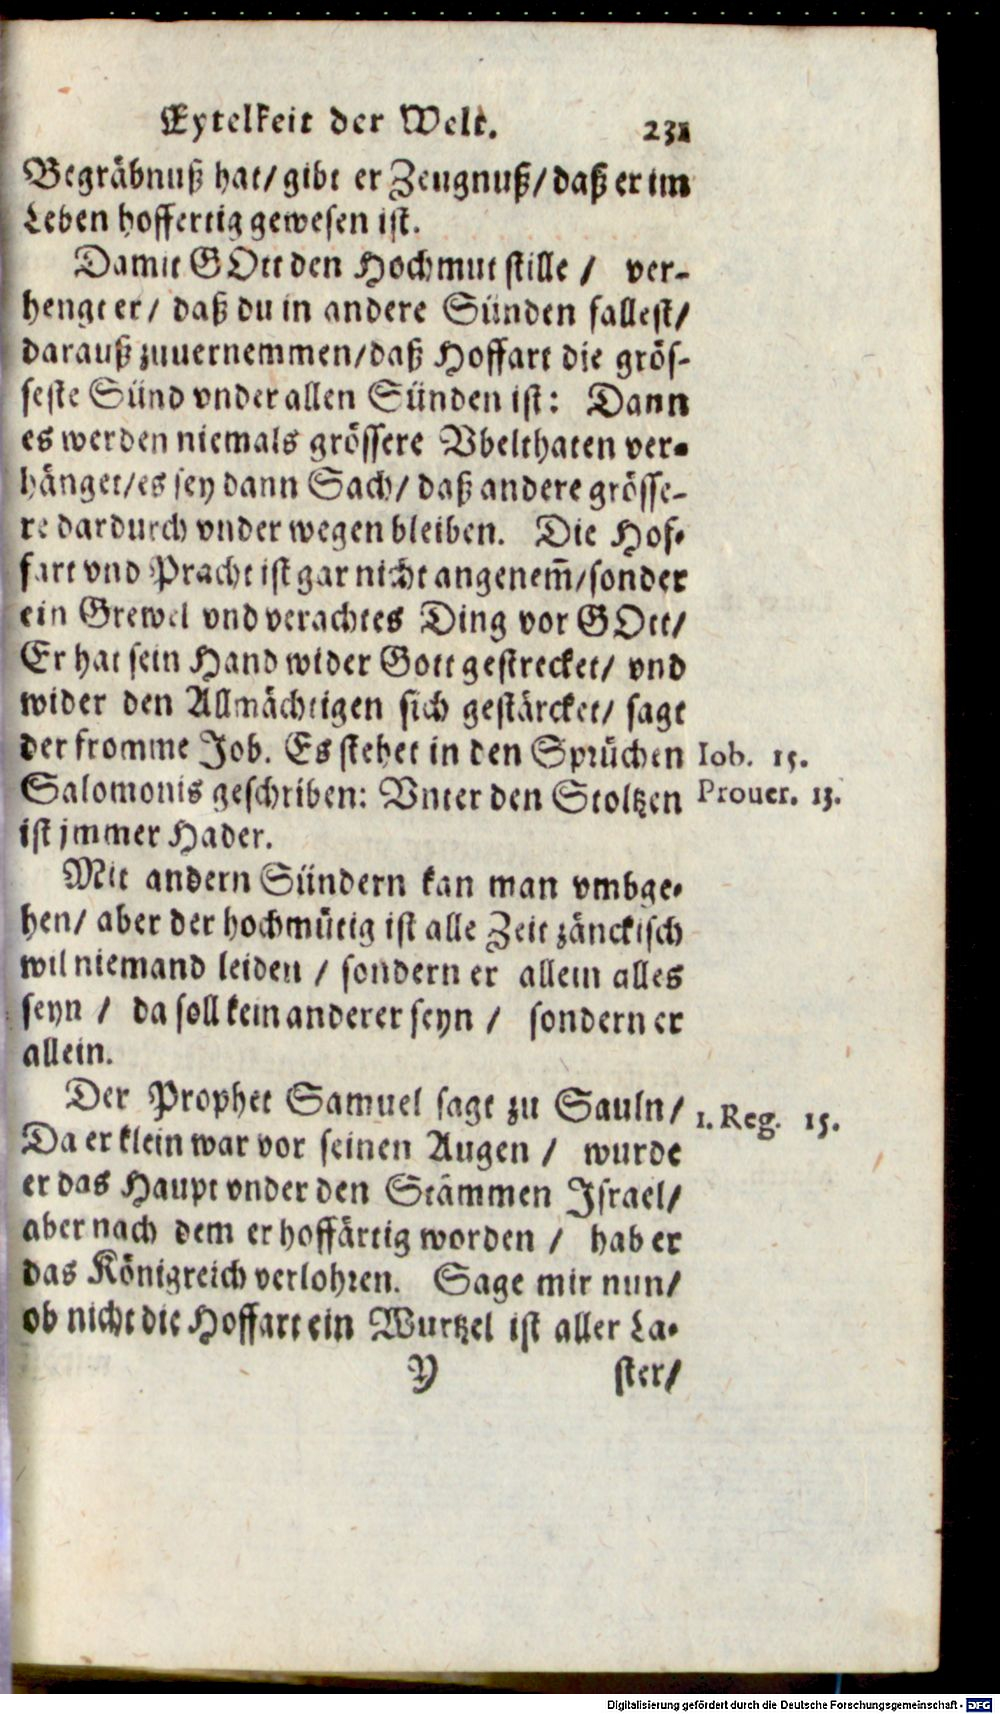 Eytelkeit der Welt. 231
Begräbnuß hat/ gibt er Zeugnuß/ daß er im
Leben hoffertig gewesen ist.
Damit GOtt den Hochmut stille / ver-
hengt er/ daß du in andere Sünden fallest/
darauß zuuernemmen/ daß Hoffart die grös-
seste Sünd vnder allen Sünden ist: Dann
es werden niemals grössere Vbelthaten ver-
hänget/ es sey dann Sach/ daß andere grösse-
re dardurch vnder wegen bleiben. Die Hof-
fart vnd Pracht ist gar nicht angenem̃/ sonder
ein Grewel vnd verachtes Ding vor GOtt/
Er hat sein Hand wider Gott gestrecket/ vnd
wider den Allmächtigen sich gestärcket/ sagt
der fromme Job. Es stehet in den Sprüchen Iob. 15.
Salomonis geschriben: Vnter den Stoltzen Prouer. 13.
ist jmmer Hader.
Mit andern Sündern kan man vmbge-
hen/ aber der hochmütig ist alle Zeit zänckisch
wil niemand leiden / sondern er allein alles
seyn / da soll kein anderer seyn / sondern er
allein.
Der Prophet Samuel sagt zu Sauln/ 1. Reg. 15.
Da er klein war vor seinen Augen / wurde
er das Haupt vnder den Stämmen Israel/
aber nach dem er hoffärtig worden / hab er
das Königreich verlohren. Sage mir nun/
ob nicht die Hoffart ein Wurtzel ist aller La-
Y ster/
Digitalisierung gefördert durch die Deutsche Forschungsgemeinschaft - DFG